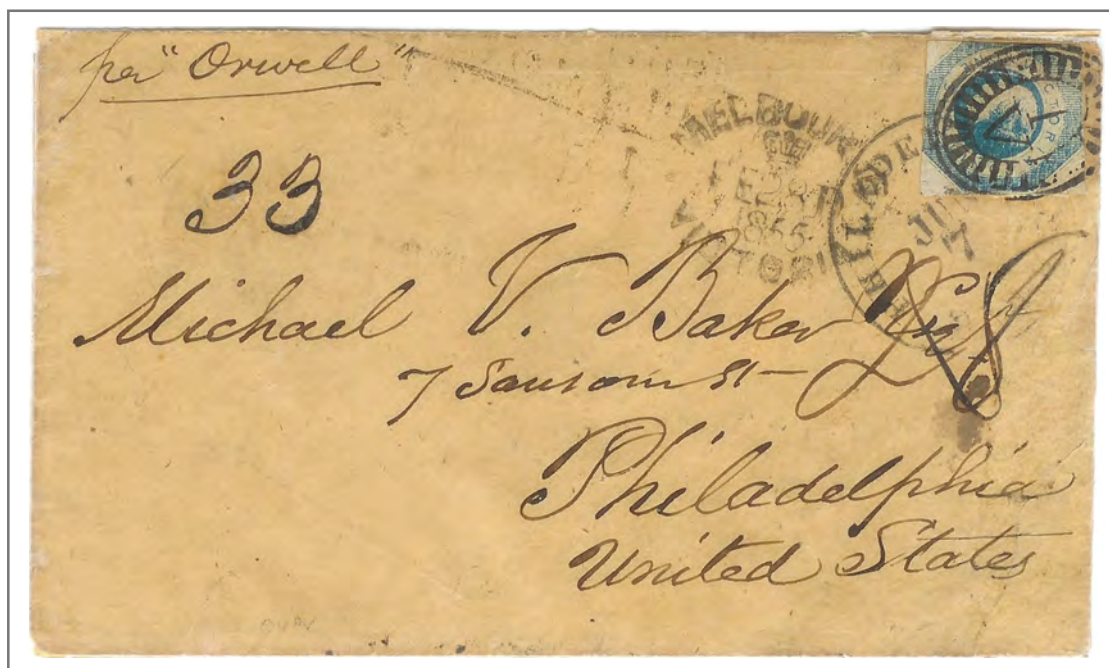 per "Orwell"
33
MELBOUR
FE
1855
VICTORI
PHILADE
JUN
7
CTORIA
1
V
Michael V. Baker Esq
7 Sansom St
8
Philadelphia
United States